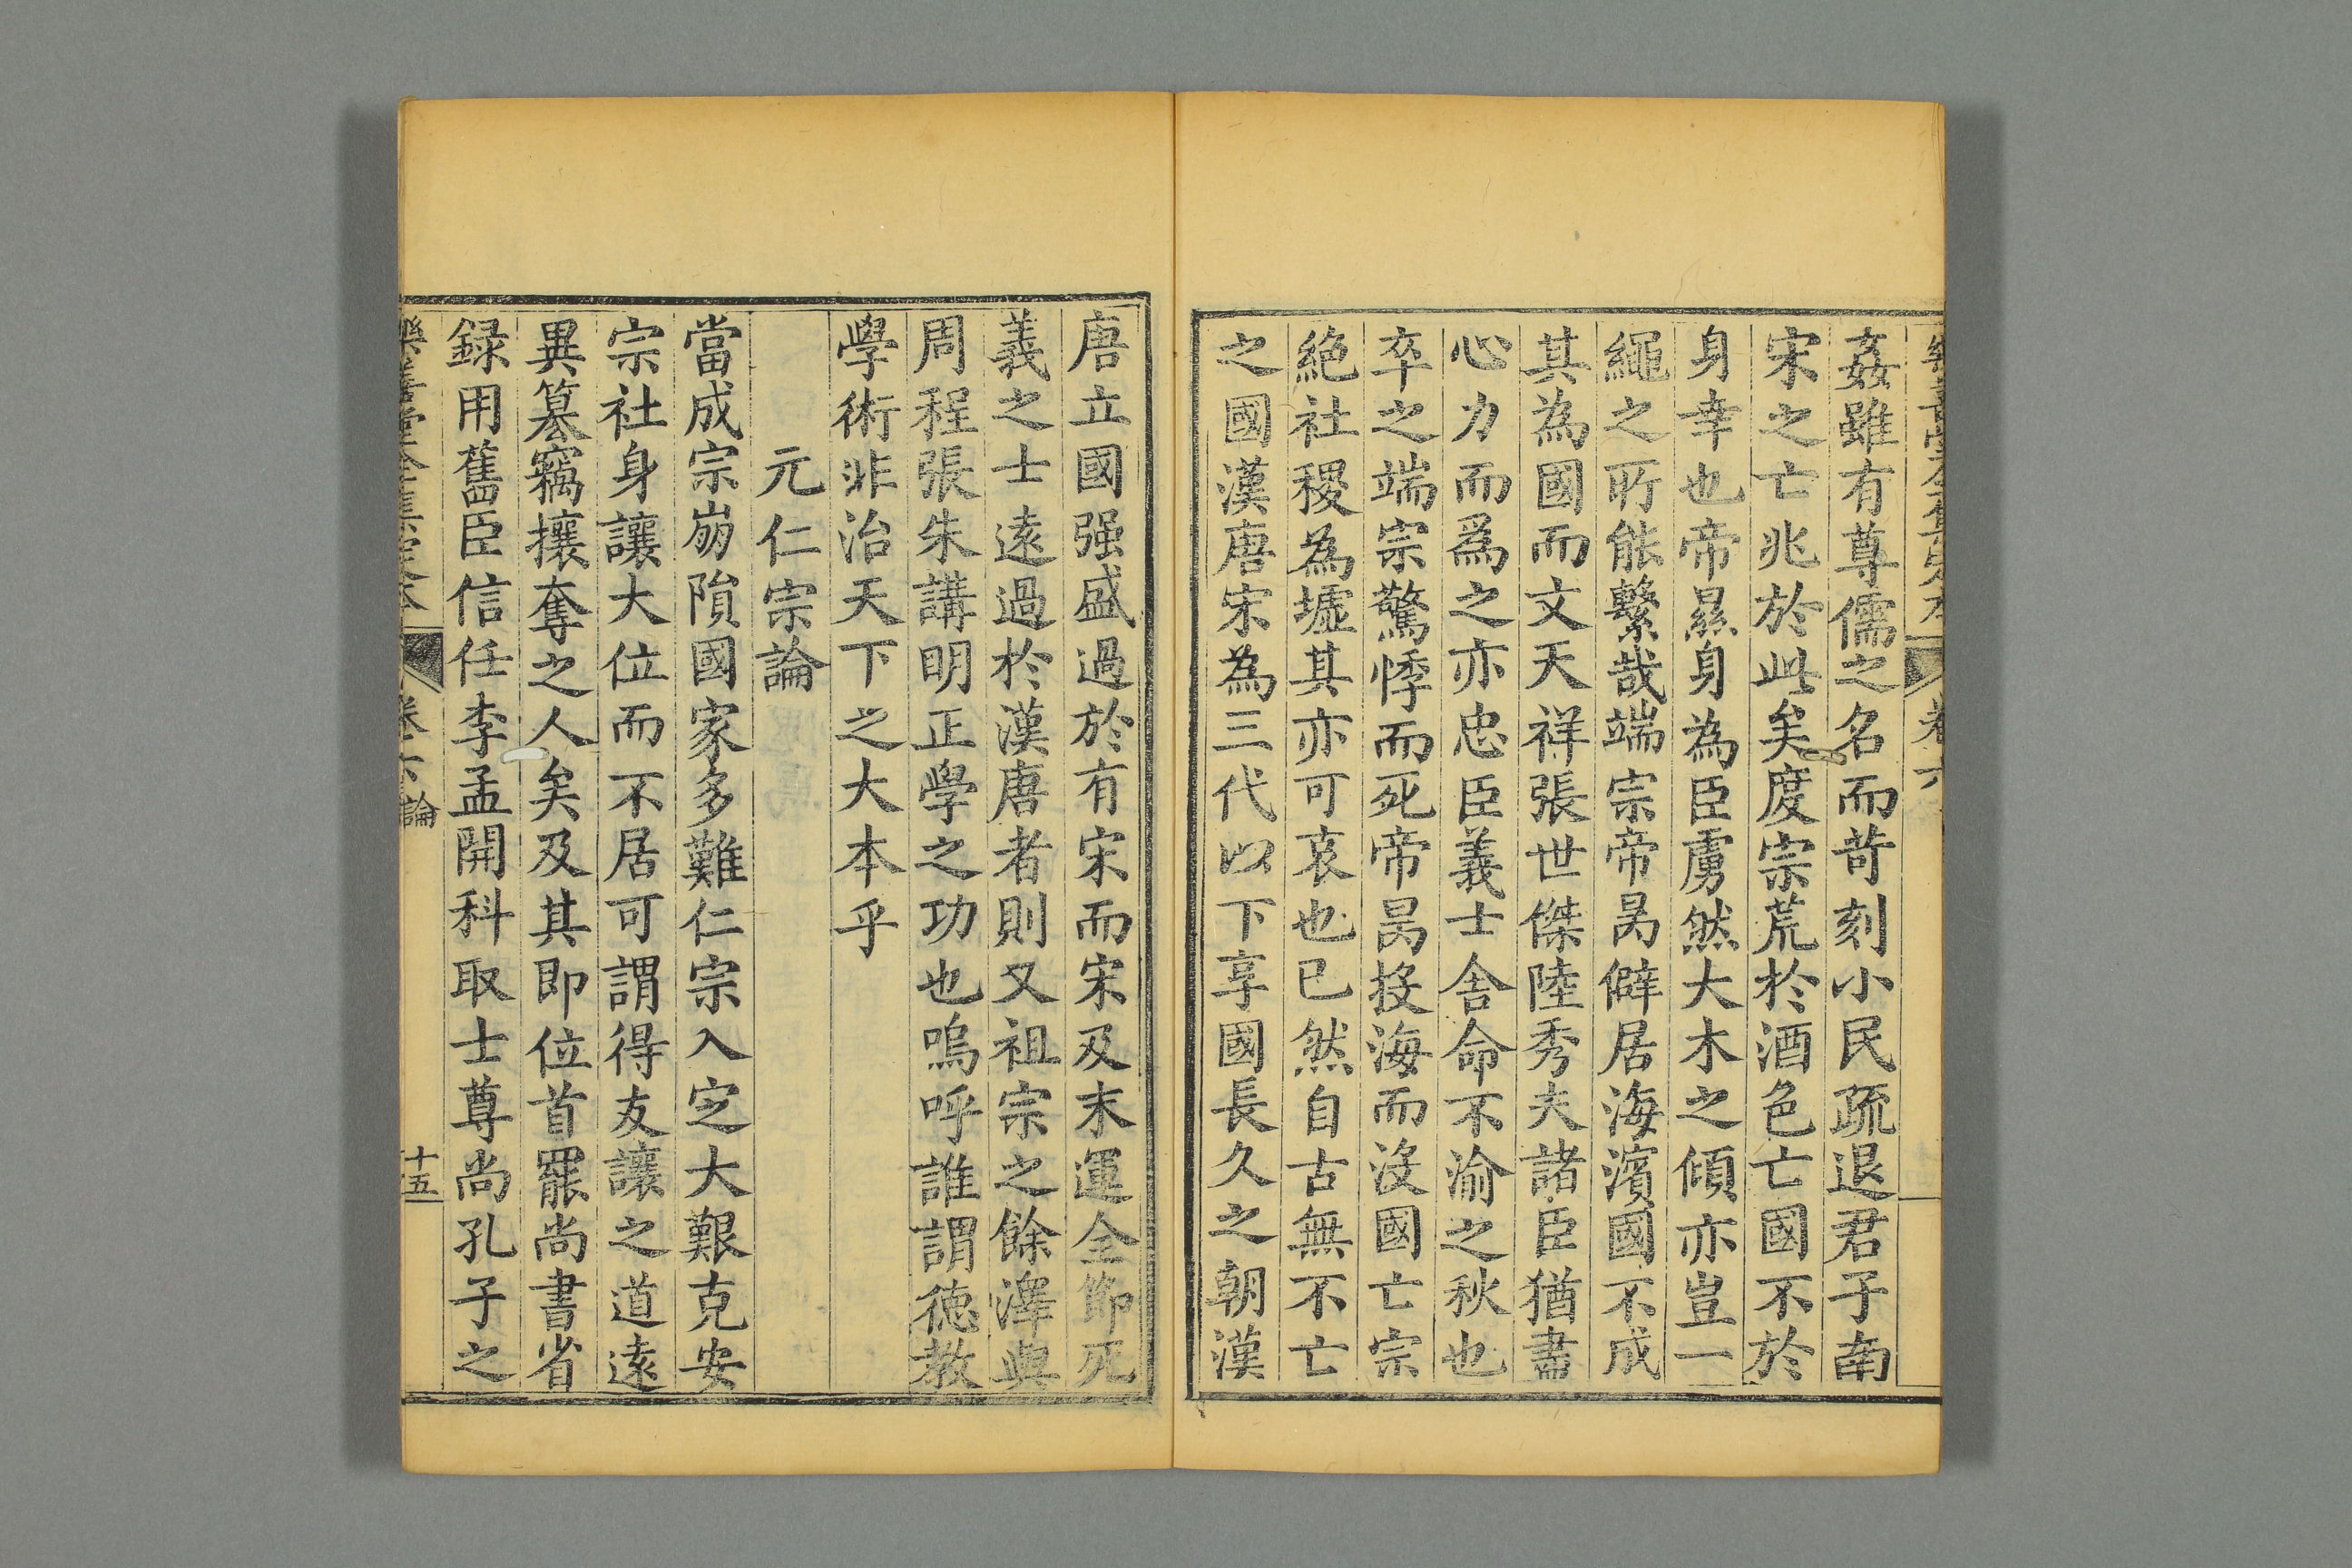 姦雖有尊儒之名而苛刻小民疏退君子南
宋之亡兆於此矣度宗荒於酒色亡國不於
身幸也帝㬎身為臣虜然大木之傾亦豈一
繩之所能繫哉端宗帝昺僻居海濱國不成
其為國而文天祥張世傑陸秀夫諸臣猶盡
心力而爲之亦忠臣義士舍命不渝之秋也
卒之端宗驚悸而死帝昺投海而沒國亡宗
絶社稷為墟其亦可哀也已然自古無不亡
之國漢唐宋為三代以下享國長久之朝漢
唐立國强盛過於有宋而宋及末運全節死
義之士遠過於漢唐者則又祖宗之餘澤與
周程張朱講明正學之功也嗚呼誰謂德教
學術非治天下之大本乎
元仁宗論
當成宗崩隕國家多難仁宗入定大艱克安
宗社身讓大位而不居可謂得友讓之道遠
異篡竊攘奪之人矣及其即位首罷尚書省
録用舊臣信任李孟開科取士尊尚孔子之
樂善堂全集定本 卷六 論 十五